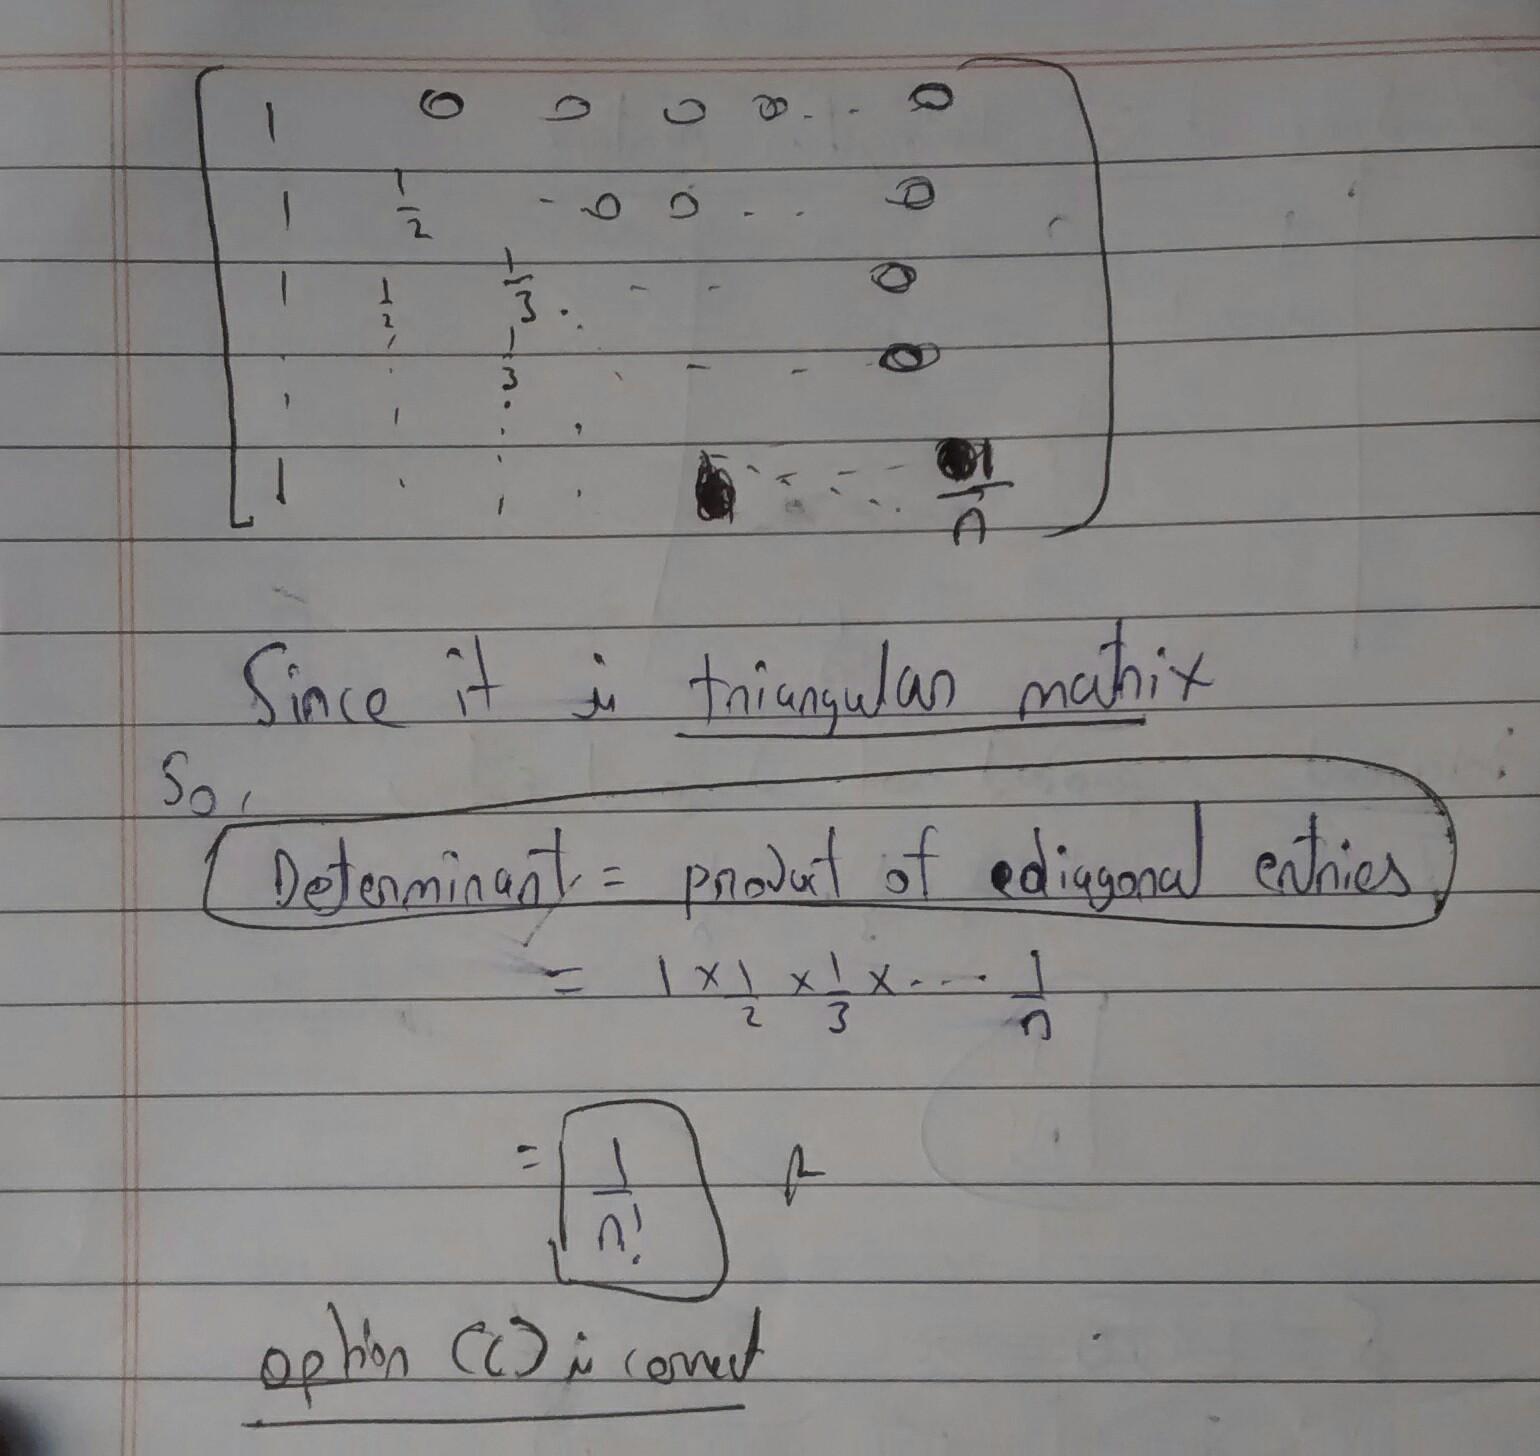 1 0 0 0 0 . . . 0
1 1/2 - 0 0 . . . 0
1 1/2 1/3 . . - - 0
1/3 . - - 0
1 . . . - - - 1/n
Since it is triangular matrix
So,
Determinant = product of ediagonal entries
= 1 × 1/2 × 1/3 × . . . . 1/n
= 1/n!
option (C) is correct